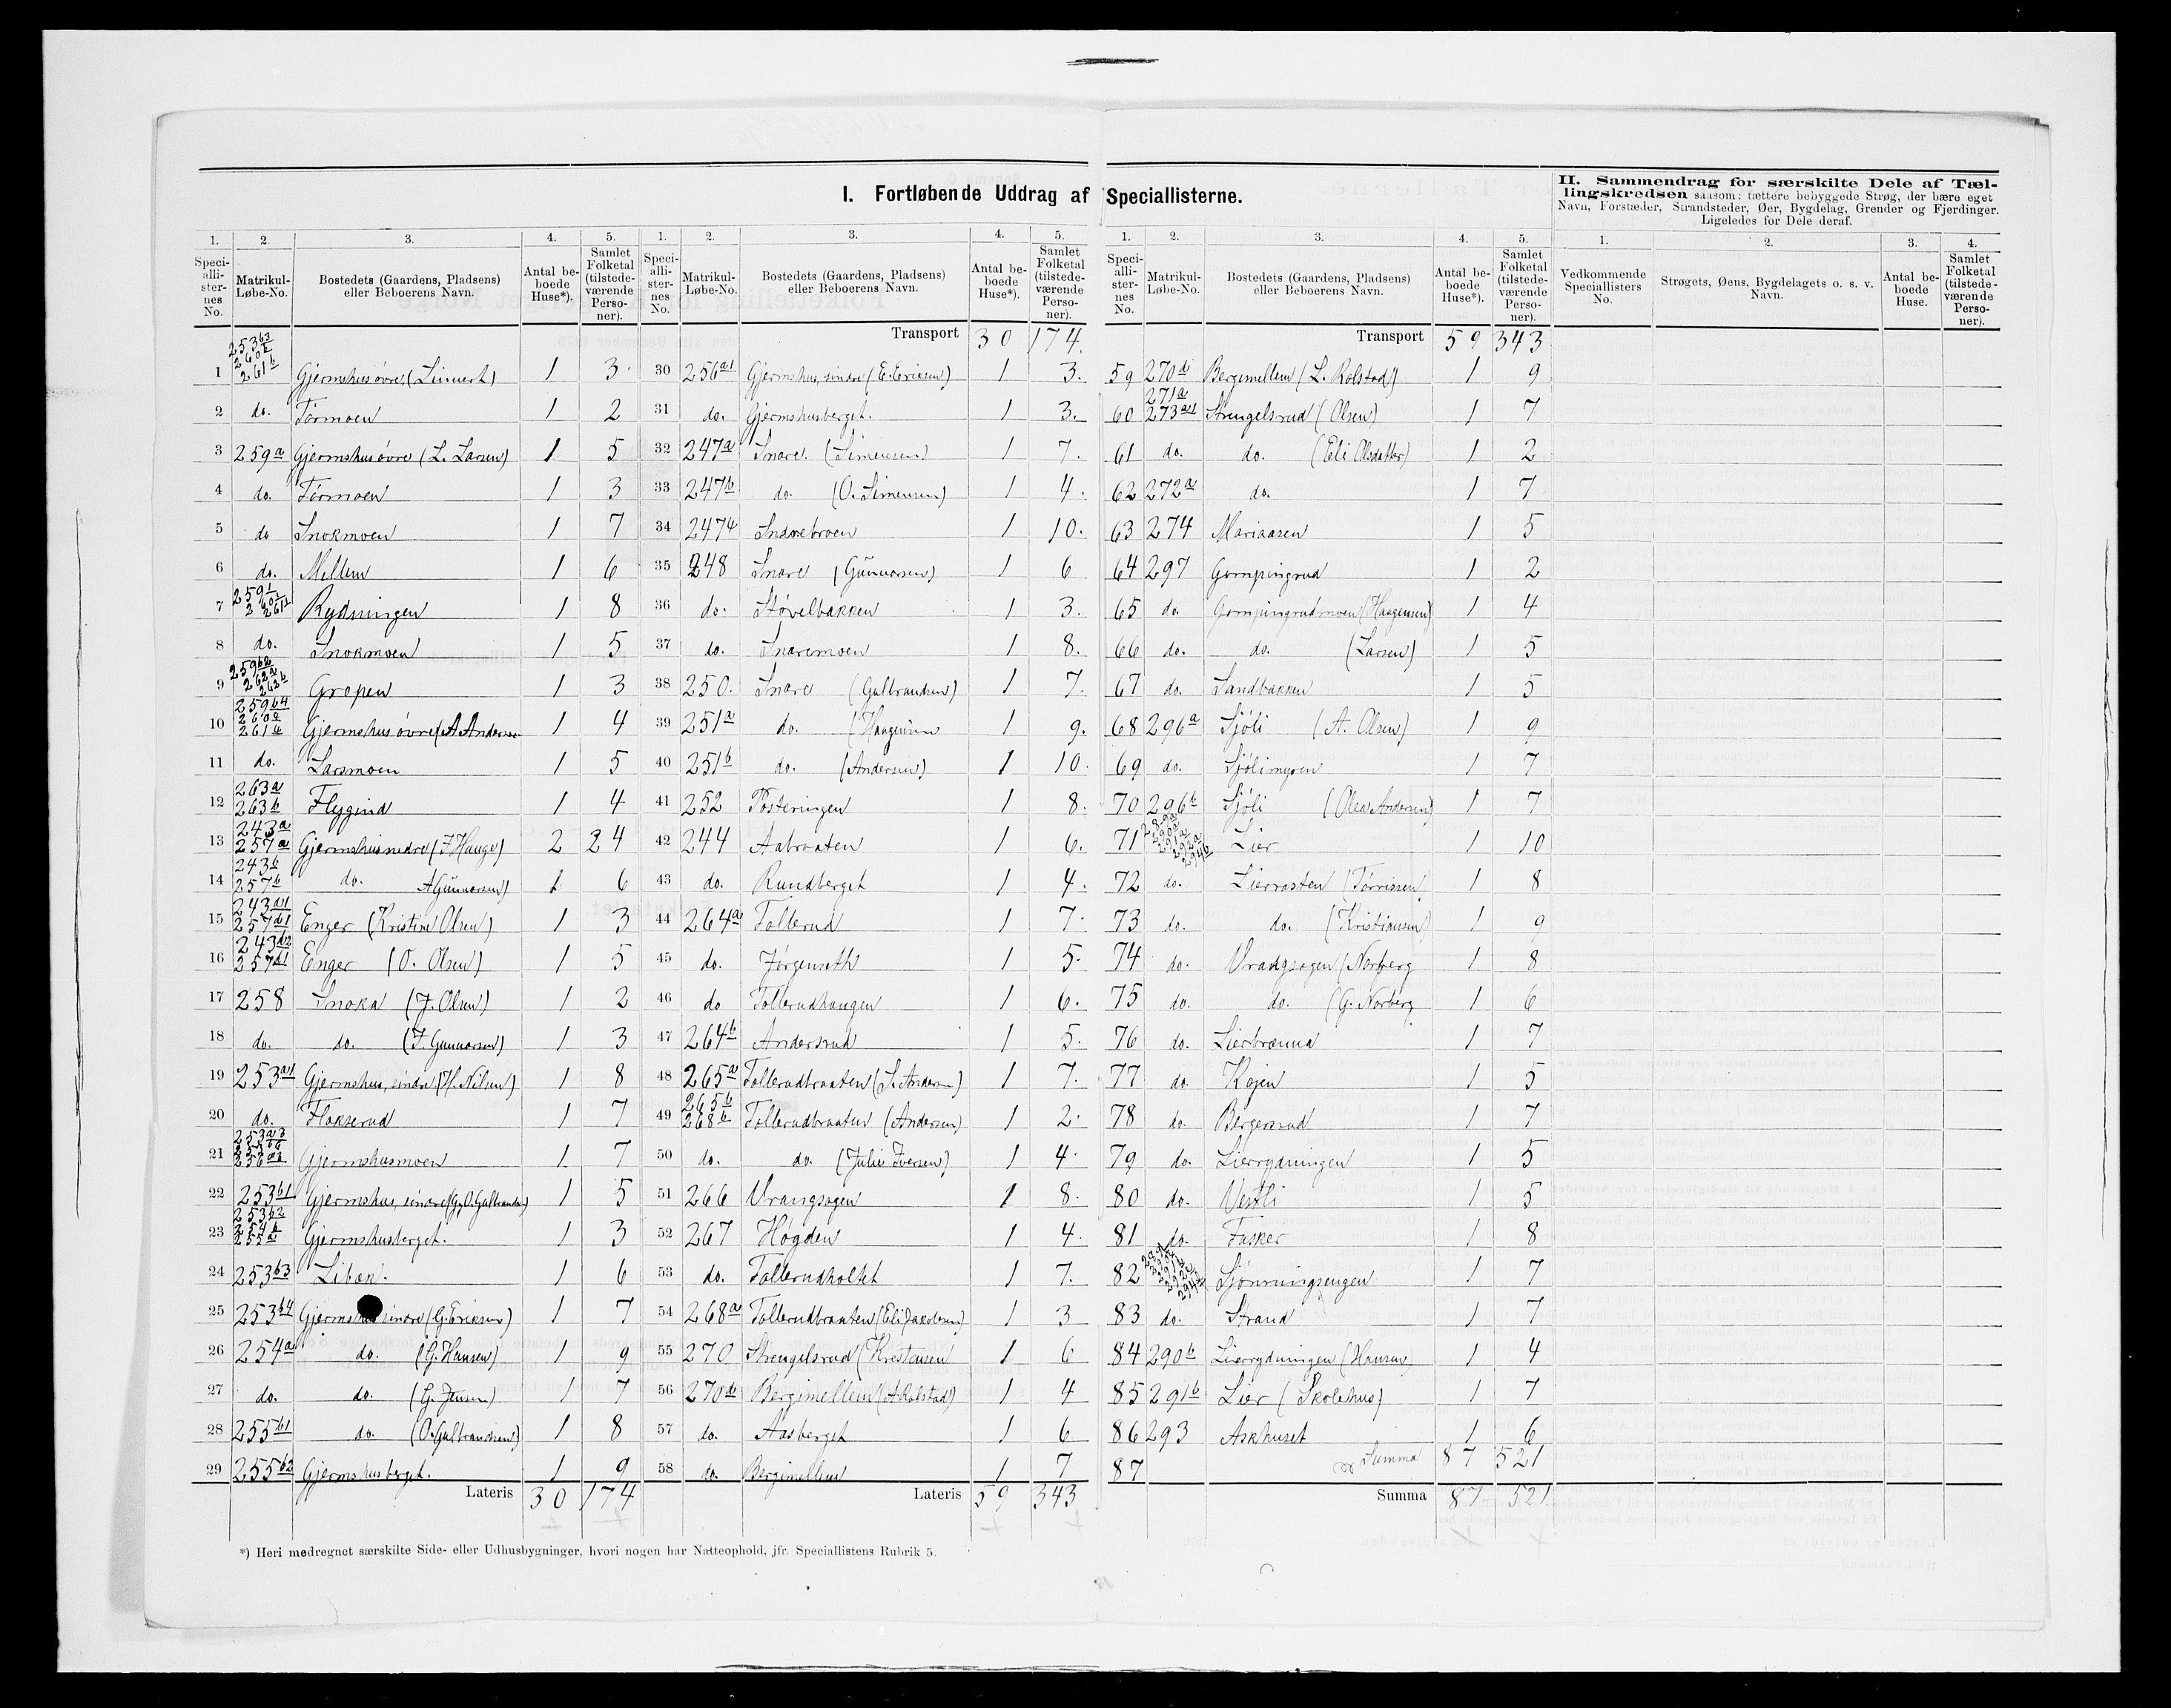 I. Fortløbende Uddrag af Speciallisterne.
II. Sammendrag for særskilte Dele af Tællingskredsen saasom: tættere bebyggede Strøg, der bære eget
Navn, Forstæder, Strandsteder, Øer, Bygdelag, Grender og Fjerdinger.
Ligeledes for Dele deraf.
1. 2. 3. 4. 5.
Speciallisternes No. Matrikul-Løbe-No. Bostedets (Gaardens, Pladsens) eller Beboerens Navn. Antal beboede Huse*). Samlet Folketal (tilstedeværende Personer).
1 253b3 260b 261b Gjermshus øvre (Linnert) 1 3
2 do. Tørmoen 1 2
3 259a Gjermshus øvre (L. Larsen) 1 5
4 do. Tørmoen 1 3
5 do Snokmoen 1 7
6 do. Mellem 1 6
7 Rydningen 1 8
8 do. Snokmoen 1 5
9 Gropen 1 3
10 259b4 260c 261c Gjermshus øvre (A Andersen 1 4
11 do. Larsmoen 1 5
12 263a 263b Flygind 1 4
13 243a 257a Gjermshus nedre (F Hauge) 2 24
14 243b 257b do. A Gunnarsen) 1 6
15 243d1 257d1 Enger (Kristine Olsen) 1 3
16 243d2 257d1 Enger (O. Olsen) 1 5
17 258 Snoka (J. Olsen) 1 2
18 do. do. (F. Gunnarsen) 1 3
19 253a1 Gjermshus, indre (H. Nilsen) 1 8
20 do. Flakserud 1 7
21 Gjermshusmoen 1 7
22 253b1 Gjermshus, indre (G. O. Gulbrandsen) 1 5
23 253b2 254b 255a Gjermshusberget. 1 3
24 253b3 Libak. 1 6
25 253b4 Gjermshus indre (G. Eriksen) 1 7
26 254a do. (G. Hansen) 1 9
27 do. do. (G. Jensen) 1 7
28 255b1 do. (O. Gulbrandsen) 1 8
29 255b2 Gjermshusberget. 1 9
Lateris 30 174
1. 2. 3. 4. 5.
Speciallisternes No. Matrikul-Løbe-No. Bostedets (Gaardens, Pladsens) eller Beboerens Navn. Antal beboede Huse*). Samlet Folketal (tilstedeværende Personer).
Transport 30 174.
30 256a1 Gjermshus, indre (E. Ericsen) 1 3.
31 do. Gjermshusberget. 1 3.
32 247a Snare. (Simensen) 1 7.
33 247b do. (O. Simensen) 1 4.
34 247c Indrebroen 1 10.
35 248 Snare (Gunnarsen) 1 6
36 do. Støvelbakken 1 3.
37 do. Snaremoen 1 8.
38 250. Snare (Gulbrandsen) 1 7.
39 251a do. (Haagensen 1 9.
40 251b do. (Andersen) 1 10.
41 252 Posteringen 1 8.
42 244 Aabraaten 1 6.
43 do. Rundberget 1 4.
44 264a Tollerud 1 7.
45 do. Jørgenseth 1 5.
46 do Tollerudhaugen 1 6.
47 264b Andersrud 1 5.
48 265a Tollerudbraaten (S. Andersen) 1 7.
49 265b 268b Tollerudbraaten (Andersen) 1 2.
50 do. do. (Julie Iversen) 1 4.
51 266 Vrangsagen 1 8.
52 267 Høgden 1 4.
53 do. Tollerudholtet 1 7.
54 268a Tollerudbraaten (Eli Jakobsen) 1 3
55 270 Strengelsrud (Krestensen 1 6
56 270b Bergimellem (A Rolstad) 1 4
57 do. Aasberget 1 6
58 do. Bergimellem 1 7
Lateris 59 343
1. 2. 3. 4. 5.
Speciallisternes No. Matrikul-Løbe-No. Bostedets (Gaardens, Pladsens) eller Beboerens Navn. Antal beboede Huse*). Samlet Folketal (tilstedeværende Personer).
Transport 59 343
59 270d Bergimellem (L. Rolstad) 1 9
60 271a 273a1 Strengelsrud (Olsen) 1 7
61 do. do. (Eli Olsdatter) 1 2
62 272a do. 1 7
63 274 Mariaasen 1 5
64 297 Gompingrud 1 2
65 do. Gompingrudmoen (Haagensen) 1 4
66 do. do. (Larsen) 1 5
67 do. Sandbakken 1 5
68 296a Sjøli (A. Olsen) 1 9
69 do. Sjølimyren 1 7
70 296b Sjøli (Olea Andersen) 1 7
71 289a 290a 291a 292a 294b Lier 1 10
72 do. Lierrasten (Tørrissen 1 8
73 do. do. (Kristiansen) 1 9
74 do. Vrangsagen (Norberg 1 8
75 do. do. (G. Norberg 1 6
76 do. Lierbrænna 1 7
77 do. Kojen 1 5
78 do. Bergersrud 1 7
79 do. Lierrydningen 1 5
80 do. Vestli 1 5
81 do. Fasker 1 8
82 Sjønningsengen 1 7
83 do. Strand 1 7
84 290b Lierrydningen (Hansen) 1 4
85 291b Lier (Skolehus) 1 7
86 293 Askhuset 1 6
87 Summa 87 521
Summa 87 521
1. 2. 3. 4.
Vedkommende Speciallisters No. Strøgets, Øens, Bygdelagets o. s. v. Navn. Antal beboede Huse. Samlet Folketal (tilstedeværende Personer).
*) Heri medregnet særskilte Side- eller Udhusbygninger, hvori nogen har Natteophold, jfr. Speciallistens Rubrik 5.